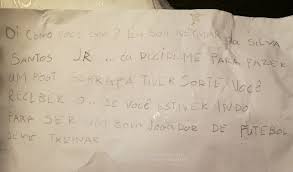 Oi COMO VOCÊ EU SOU NEYMAR DA SILVA
SANTOS JR ... EU DICIDI ME PARA FAZER
UM TIVER SORTE, VOCÊ
RECEBER O... SE VOCÊ ESTIVER INDO
PARA SER UM BOM JOGADOR DE FUTEBOL
DEVE TREINAR